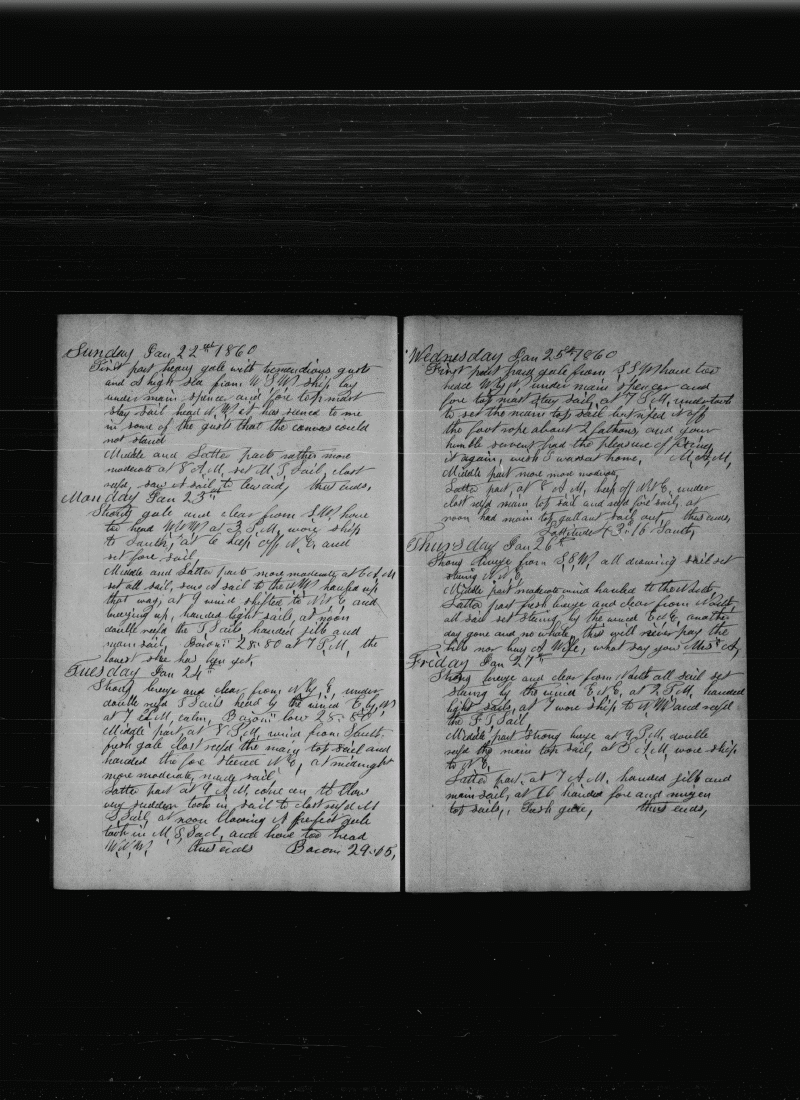 Sunday Jan 22nd 1860
First part heavy gale with tremendious gusts
and A high sea from W.S.W. ship lay
under main spencer and fore top mast
stay sail head N.W. it has seemed to me
in some of the gusts that the canvas could
not stand
Middle and Latter parts rather more
moderate at 8 A.M. set M. T. Sail, close
refd, saw A sail to leward, thus ends,
Monday Jan 23rd
Strong gale and clear from S.W. hove
too head W.N.W. at 3 P.M. wore ship
to South, at 6 keep off N.E. and
set fore sail,
Middle and Latter parts more moderate at 6 A.M
set all sail, saw A sail to the N.W. hauled up
that way, at 9 wind shifted to N.N.E. and
breezing up, handed light sails, at noon
double refd the T. Sails, handed jibb and
main sail, Barom 28.80 at 7 P.M, the
lowest she has ben yet,
Tuesday Jan 24th
Strong breeze and clear from N. by E, under
double refd T. Sails head by the wind E. by N
at 7 P.M. calm, Barom low 28.80,
Middle part, at 8 P.M. wind from South,
fresh gale close refd the main top sail and
handed the fore steered N.E, at midnight
more moderate, made sail
Latter part at 9 A.M. come on to blow
very sudden took in sail to close refd M
T. Sail, at noon blowing A perfect gale
took in M, T, Sail, and hove too head
W.N.W. thus ends Barom 29.45,
Wednesday Jan 25th 1860
First part hard gale from S.S.W. hove too
head W. by N, under main spencer and
fore top mast stay sail, at 7 P.M, undertook
to set the main top sail but riped it off
the foot rope about 2 fathoms, and your
humble servent had the pleasure of fixing
it again, wish I was at home, M. A. M,
Middle part more moderate,
Latter part, at 8 A.M, keep off N.N.E. under
close refd main top sail and refd fore sail, at
noon had main top gallant sail out, thus ends,
Latitude 43.16 South,
Thursday Jan 26th
Strong breeze from S.S.W. all drawing sail set
stering N.N.E,
Middle part moderate wind hauled to the North,
Latter part fresh breeze and clear from North,
all sail set stering by the wind E.N.E, another
day gone and no whale, this will never pay the
bills nor huny A Wife, what say you Mrs A,
Friday Jan 27th
Strong breeze and clear from North all sail set
stering by the wind E.N.E, at 2 P.M, handed
light sails, at 7 wore ship to N.W and refd
the F. T. Sail,
Middle part strong breeze at 9 P.M. double
refd the main top sail, at 3 A.M, wore ship
to N.E,
Latter part, at 7 A.M. handed jibb and
main sail, at 11 handed fore and mizen
top sails, fresh gale, thus ends,